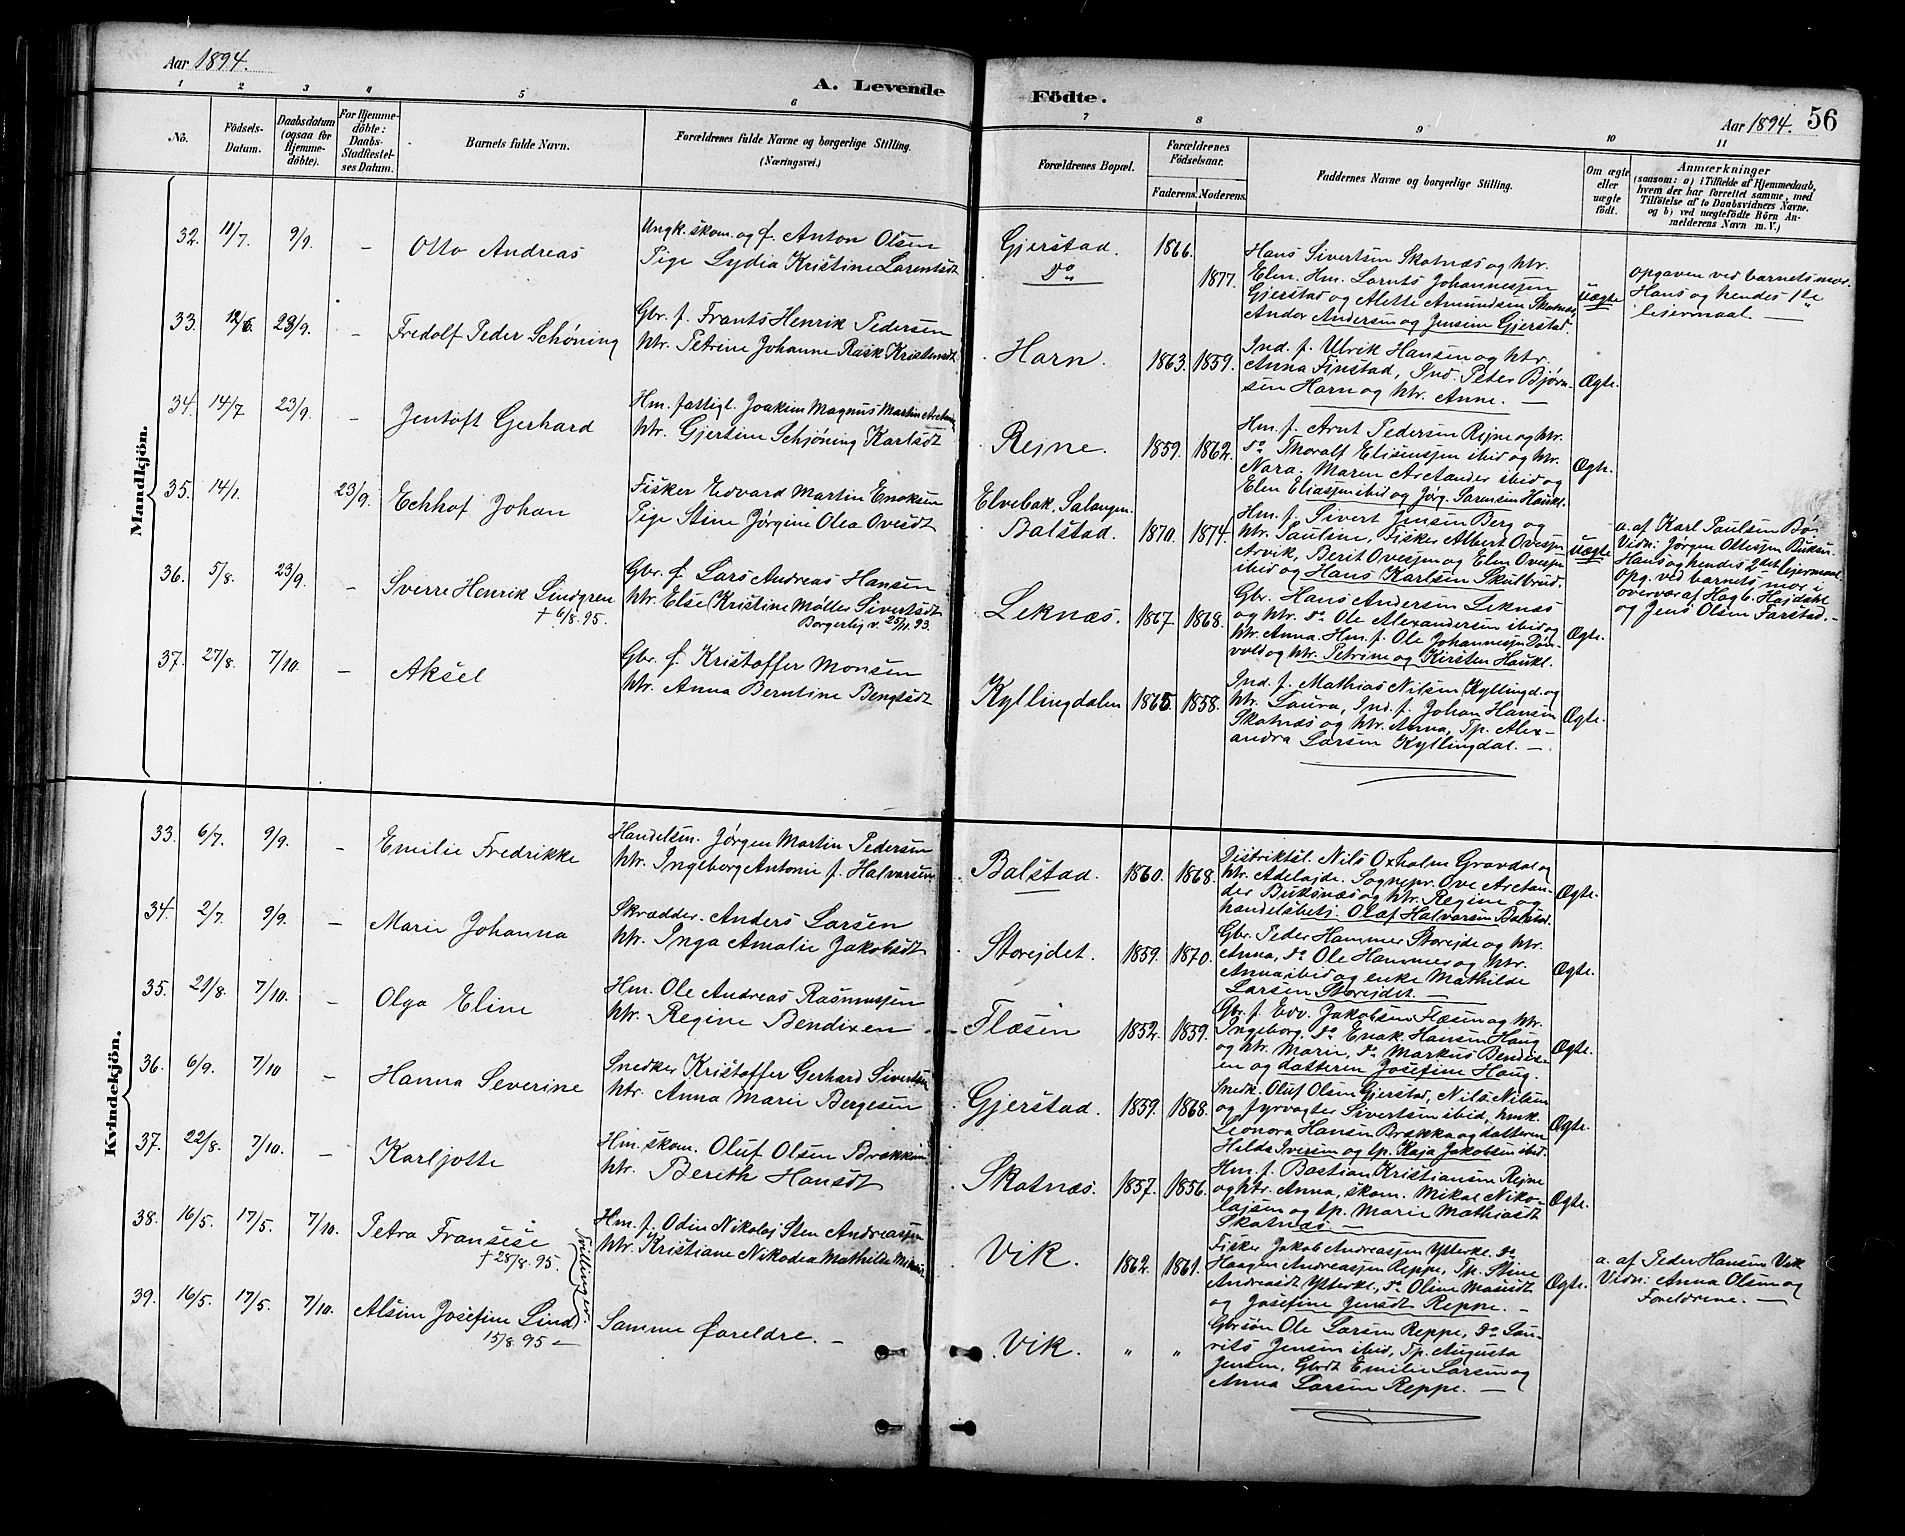 Aar 1894.
A. Levende
Födte.
Aar 1894. 56
1 2 3 4 5 6
7 8 9 10 11
No.
Födsels-
Datum.
Daabsdatum
(ogsaa for
Hjemme-
döbte).
For Hjemme-
döbte:
Daabs-
Stadfæstel-
ses Datum.
Barnets fulde Navn.
Forældrenes fulde Navne og borgerlige Stilling.
(Næringsvei.)
Forældrenes Bopæl.
Forældrenes
Födselsaar.
Faderens. Moderens.
Faddernes Navne og borgerlige Stilling.
Om ægte
eller
uægte
födt.
Anmærkninger
(saasom: a) i Tilfælde af Hjemmedaab,
hvem der har forrettet samme, med
Tilföielse af to Daabsvidners Navne.
og b) ved uægtefödte Börn An-
melderens Navn m. V.)
Mandkjön.
32. 11/7. 9/9. – Otto Andreas
Ungk. skom. og f. Anton Olsen
Pige Lydia Kristine Lorentsdt
Gjerstad.
Do
1866.
1877.
Hans Sivertsen Skotnæs og htr.
Elen. Hm. Lornts Johannessen
Gjerstad og Alette Amundsen Skotnæs,
Ander Andersen og Jensine Gjerstad.
Uægte
Opgaven ved barnets mor.
Hans og hendes 1ste
leiermaal. –
33. 12/6. 23/9. – Fredolf Peder Schøning
Gbr. f. Frants Henrik Pedersen
htr. Petrine Johanne Rask Kristensdt
Horn. 1863. 1859.
Ind. f. Ulrik Hansen og htr.
Anna Finstad, Ind. Peter Bjørn-
sen Horn og htr. Anne. –
Ægte.
34. 14/7 23/9. – Jentoft Gerhard
Hm. fattigl. Joakim Magnus Martin Arctander
htr. Gjertine Schjøning Karlsdt
Rejne. 1859. 1862.
Hm. f. Arnt Pedersen Rejne og htr.
do Thoralf Elisensen ibid og htr.
Nora. Maren Arctander ibid og
Elen Eliassen ibid og Jørg. Sørensen Haukl.
Ægte.
35. 14/1. 23/9. Echhof Johan
Fisker Edvard Martin Enoksen
Pige Stine Jørgine Olea Ovesdt
Elvebak, Salangen.
Balstad. 1870. 1874.
Hm. f. Sivert Jensen Berg og
htr. Pauline, Fisker Albert Ovesen
Arvik, Berit Ovesen og Elen Ovesen
ibid og Hans Karlsen Skulbrud.
Uægte
a. af Karl Paulsen Bø.
Vidn: Jørgen Ottesen Buksn.
Hans og hendes 2det lejermaal.
Opg. ved barnets mor i
overvær af Hag b. Hajdahl
og Jens Olsen Farstad. –
36. 5/8. 23/9. – Sverre Henrik Lindgren
† 6/8. 95.
Gbr. f. Lars Andreas Hansen
htr. Else Kristine Møller Sivertsdt
Borgerlig v. 25/11. 93.
Leknæs. 1867. 1868.
Gbr. Hans Andersen Leknæs
og htr. do Ole Alexandersen ibid og
htr. Anna. Hm. f. Ole Johannessen Døn-
vold og htr. Petrine og Kirsten Haukl.
Ægte.
37. 27/8. 7/10. – Aksel
Gbr. f. Kristoffer Monsen
htr. Anna Berntine Bengtsdt
Kyllingdalen 1865. 1858.
Ind. f. Mathias Nilsen Kyllingd. og
htr. Laura, Ind. f. Johan Hansen
Skotnæs og htr. Anna, Tp. Alex-
andra Larsen Kyllingdal. –
Ægte.
Kvindekjön.
33. 6/7. 9/9. – Emilie Fredrikke
Handelsm. Jørgen Martin Pedersen
htr. Ingeborg Antonie f. Halvorsen
Balstad. 1860. 1868.
Distriktsl. Nils Oxholm Gravdal og
htr. Adelajde. Sognepr. Ove Arctan-
der Buksnæs og htr. Regine og
handelsbetj. Olaf Halvorsen Balstad.
Ægte.
34. 2/7. 9/9. – Marie Johanna
Skrædder. Anders Larsen
htr. Inga Amalie Jakobsdt
Storejdet. 1859. 1870.
Gbr. Peder Hammer Storejde og htr.
Anna, do Ole Hammer og htr.
Anna, ibid og enke Mathilde
Larsen Storejdet. –
Ægte.
35. 21/8. 7/10. – Olga Eline
Hm. Ole Andreas Rasmussen
htr. Regine Bendixen
Flæsen 1852. 1859.
Gbr. f. Edv. Jakobsen Flæsen og htr.
Ingeborg, do Enok Hansen Haug
og htr. Marie, do Markus Bendix-
en og datteren Josefine Haug.
Ægte.
36. 6/9. 7/10 – Hanna Severine
Snedker Kristoffer Gerhard Sivertsen
htr. Anna Marie Bergesen
Gjerstad. 1859. 1868.
Snedk. Oluf Olsen Gjerstad, Nils Nilsen
og fyrvogter Sivertsen ibid, hmk.
Leonora Hansen Brække og datteren
Hilda Iversen og tp. Kaja Jakobsen ibid.
Ægte.
37. 22/8. 7/10. – Karljotte
Hm. skom. Oluf Olsen Brækken
htr. Berith Hansdt
Skotnæs. 1857. 1856.
Hm. f. Bastian Kristiansen Rejne
og htr. Anna, skom. Mikal Niko-
lajsen og tp. Marie Mathiasdt
Skotnæs. –
Ægte.
38. 16/5. 17/5. 7/10. Petra Fransise
† 28/8. 95.
Tvillinger.
Hm. f. Odin Nikolaj Sten Andreassen
htr. Kristiane Nikodea Mathilde
Vik. 1862. 1861.
Fisker Jakob Andreassen Ytterkl. do
Haagen Andreassen Reppe, Tp. Stine
Andreasdt Ytterkl, do Oline Monsdt
og Josefine Jensdt Reppe. –
Ægte.
a. af Peder Hansen Vik
Vidn: Anna Olsen og
Foreldrene. –
39. 16/5. 17/5. 7/10. Alsine Josefine Lind
15/8. 95 –
Samme Foreldre. –
Vik. " "
Gbrsøn Ole Larsen Reppe, do Lau-
rits Jensen ibid, Tp. Augusta
Jensen, Gbrdt Emilie Larsen og
Anna Larsen Reppe. –